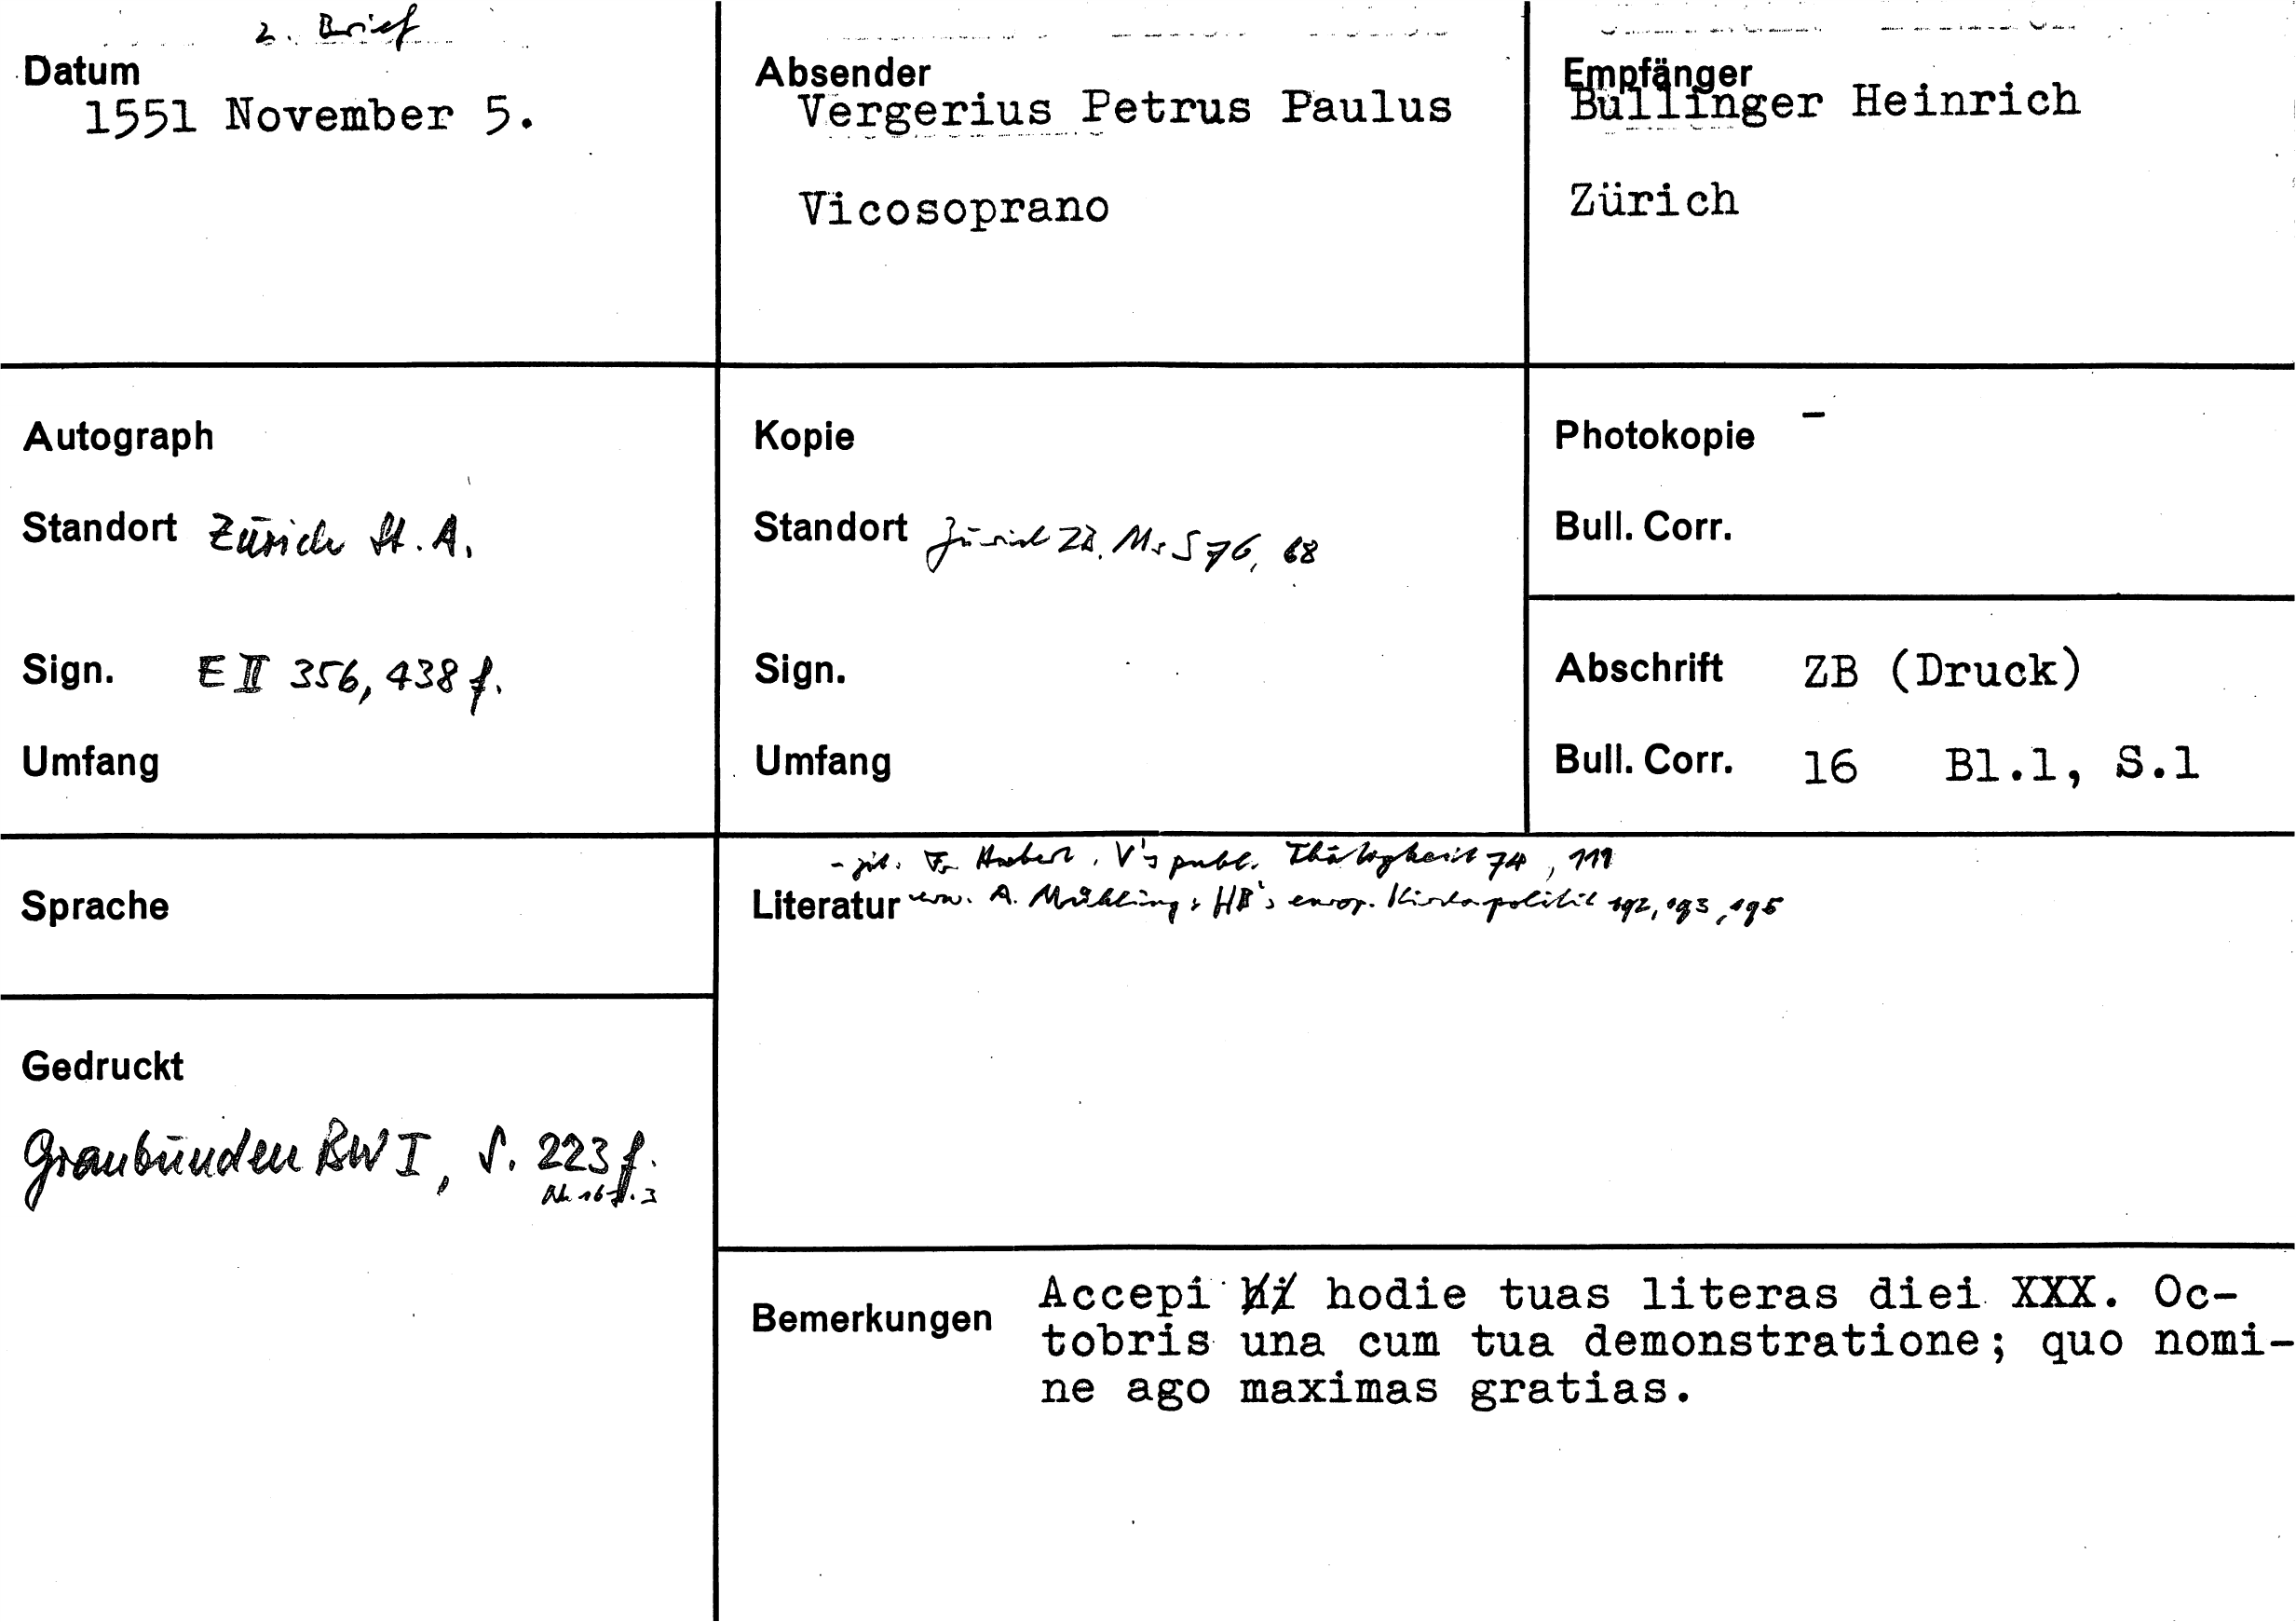 2. Brief
Datum
1551 November 5.
Absender
Vergerius Petrus Paulus
Vicosoprano
Empfänger
Bullinger Heinrich
Zürich
Autograph
Standort Zürich St. A.
Sign. E II 356, 438 f.
Umfang
Kopie
Standort Zürich ZB. Ms S 76, 68
Sign.
Umfang
Photokopie -
Bull. Corr.
Abschrift ZB (Druck)
Bull. Corr. 16 Bl.1, S.1
Sprache
- zit. Fr. Hubert, V's publ. Thätigkeit 74, 111
Literatur erw. A. Mühling, HB's europ. Kirchenpolitik 192, 193, 195
Gedruckt
Graubünden BW I, S. 223 f.
Nr. 167. 3
Bemerkungen
Accepi hodie tuas literas diei XXX. Oc-
tobris una cum tua demonstratione; quo nomi-
ne ago maximas gratias.